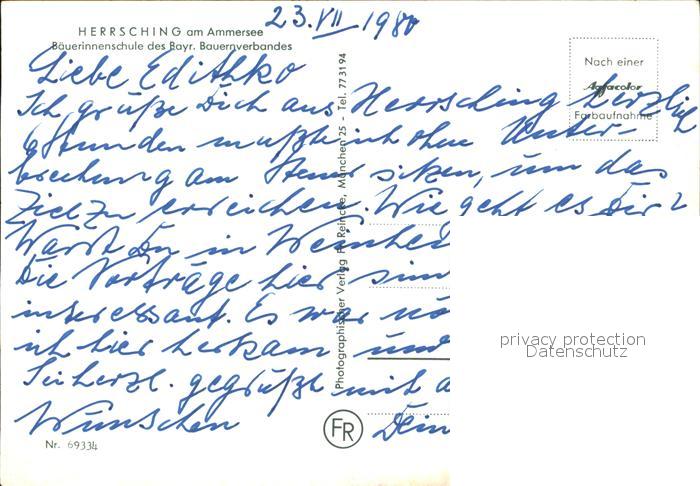 23. VII 1980
HERRSCHING am Ammersee
Bäuerinnenschule des Bayr. Bauernverbandes
Nach einer
Agfacolor
Farbaufnahme
Liebe
Ich grüße Dich aus Herrsching herzlich
6 Stunden mußte ich ohne Unter-
brechung am Steuer sitzen, um das
Ziel zu erreichen. Wie geht es Dir?
Warst Du in
Die Vorträge hier sin
interessant. Es war nö
ich hier herkam und
Sei herzl. gegrüßt mit a
Wünschen
Dein
Photographischer Verlag Fr. Reincke, München 25 - Tel. 773194
FR
Nr. 69334
privacy protection
Datenschutz